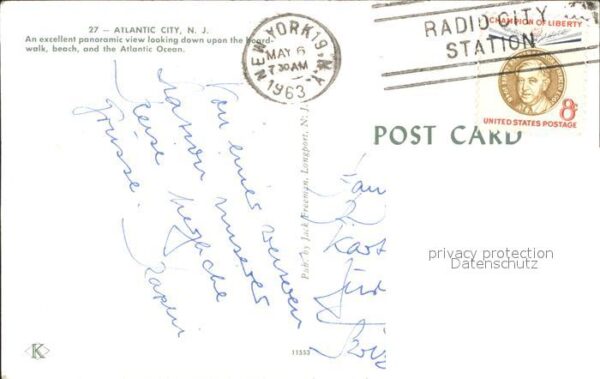 27 — ATLANTIC CITY, N. J.
An excellent panoramic view looking down upon the board-
walk, beach, and the Atlantic Ocean.
NEW YORK 19 N.Y.
MAY 6
7 30 AM
1963
RADIO CITY
STATION
CHAMPION OF LIBERTY
8¢
UNITED STATES POSTAGE
POST CARD
Von einer weiteren
Station unserer
Reise herzliche
Grüsse.
Pub. by Jack Freeman, Longport, N. J.
privacy protection
Datenschutz
K
11553